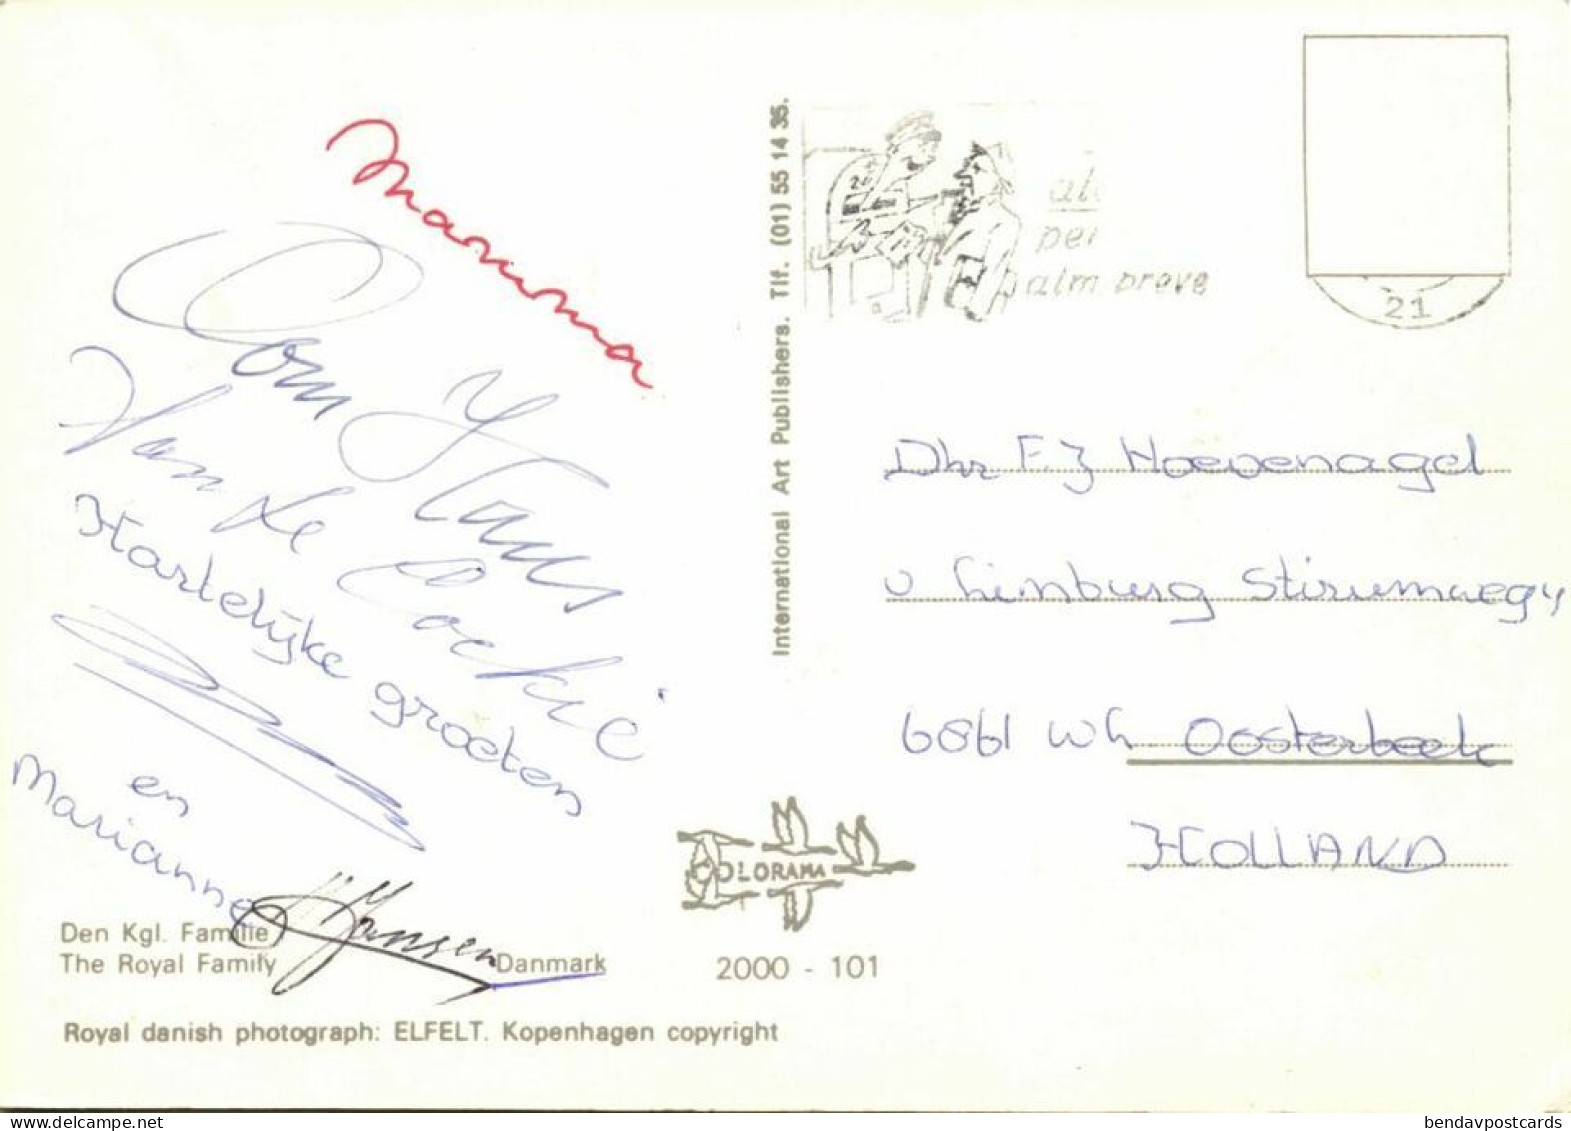 Marianna
Oom Klaas
Tante Coekie
Hartelijke groeten
en
Marianne
H Jansen
Den Kgl. Familie
The Royal Family
Danmark
Royal danish photograph: ELFELT. Kopenhagen copyright
International Art Publishers. Tlf. (01) 55 14 35.
COLORAMA
2000 - 101
per
alm breve
21
Dhr F.J Hoevenagel
v Limburg Stirumweg 4
6861 Wh Oosterbeek
HOLLAND
bendavpostcards